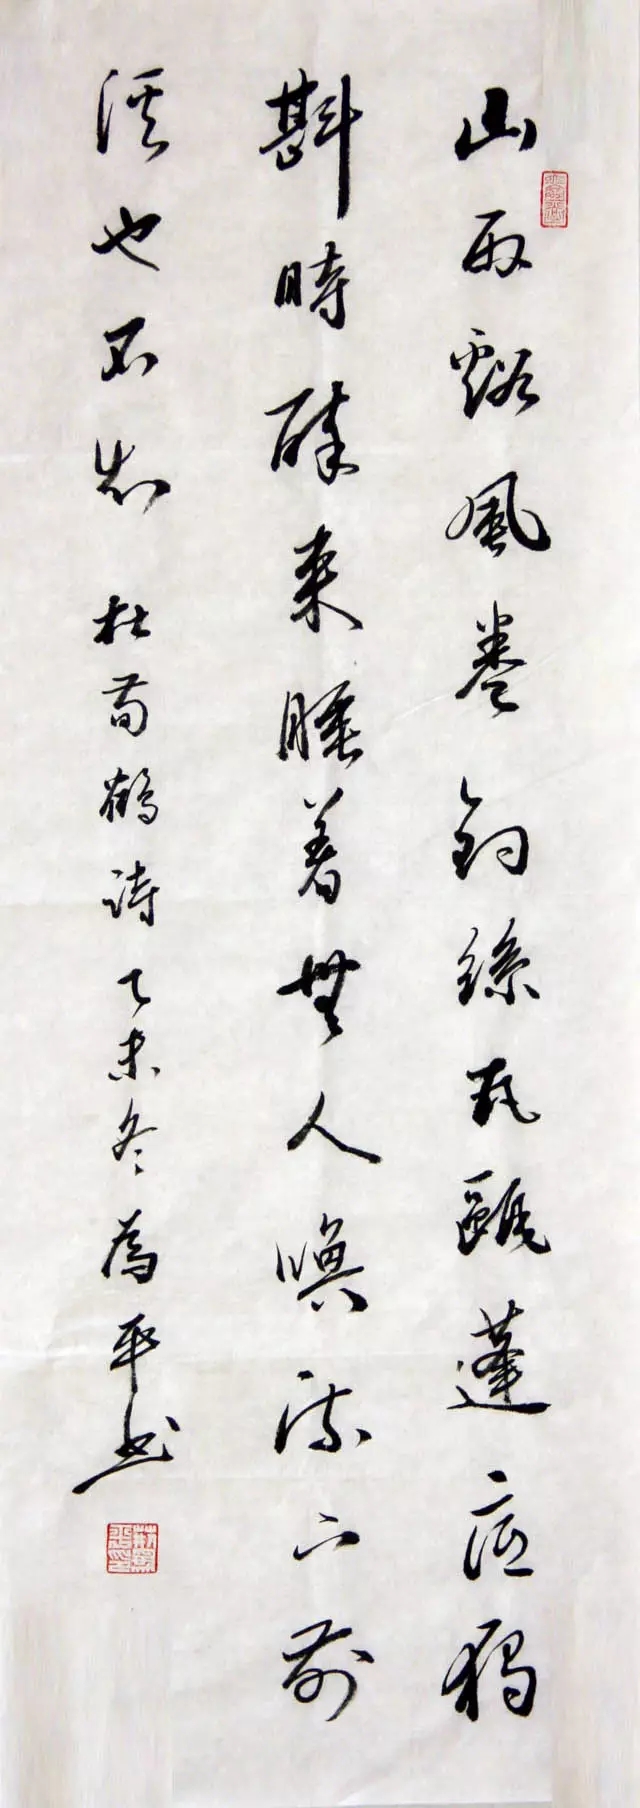 山雨谿風卷釣絲瓦甌蓬底獨
斟時醉來睡着無人喚流下前
溪也不知 杜荀鶴詩 乙未冬 為平書